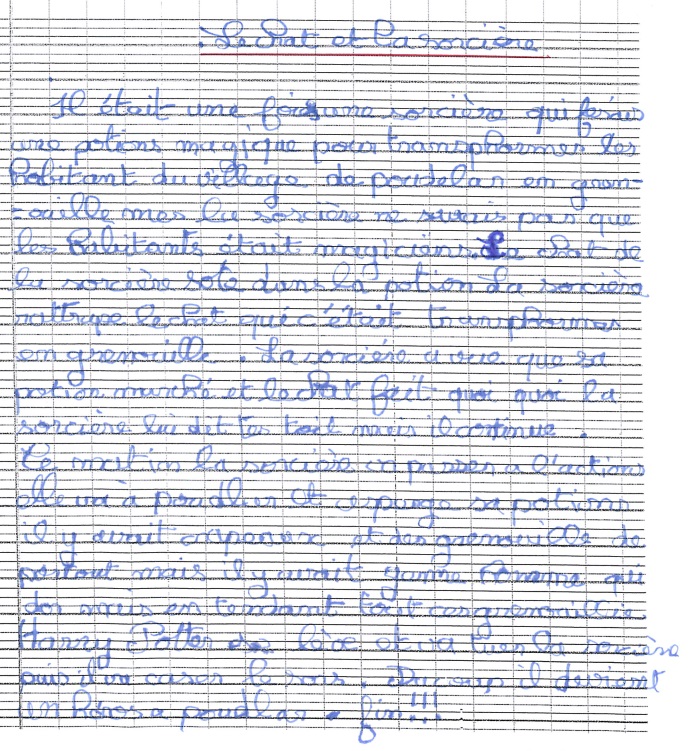 Le chat et la sorcière
Il était une fois une sorcière qui fesais
une potions magique pour transphormer les
habitant du village de poudelar en gren-
ouille mes la sorcière ne savais pas que
les habitants était magiciens. Le chat de
la sorcière sote dans la potion La sorcière
rattrape le chat qui c'était transphormer
en grenouille. La sorcière a vue que sa
potion marché et le chat fait quoi quoi la
sorcière lui dit tes toit mais il continue.
Le mat in la sorcière va passer a l'actions
elle va à poudlar et sa potions
il y avait et des grenouille de
partout mais il y avait homme qui
dor mais en tendant tout ces grenouille
Harry Potter se lève et va tuer la sorcière
puis il va casser le . Du coup il devient
un héros a poudlar. fin!!!